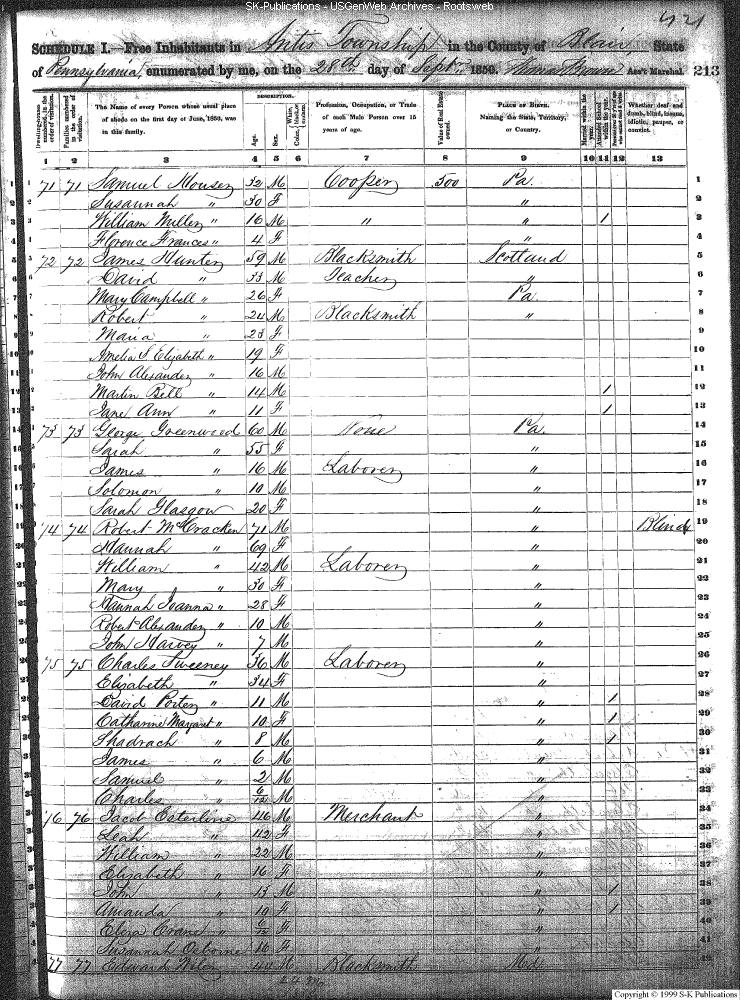 SK-Publications - USGenWeb Archives - Rootsweb
421
SCHEDULE I.—Free Inhabitants in Antis Township in the County of Blair State
of Pennsylvania enumerated by me, on the 28th day of Septr. 1850. Brown Ass't Marshal. 213
DESCRIPTION.
The Name of every Person whose usual place of abode on the first day of June, 1850, was in this family.
Age. Sex.
Profession, Occupation, or Trade of each Male Person over 15 years of age.
Value of Real Estate owned.
PLACE OF BIRTH. Naming the State, Territory, or Country.
Whether deaf and dumb, blind, insane, idiotic, pauper, or convict.
1 2 3 4 5 6 7 8 9 10 11 12 13
1 71 71 Samuel Houser 32 M Cooper 500 Pa. 1
2 Susannah " 30 F " 2
3 William Miller " 16 M " " / 3
4 Florence Frances " 4 F " 4
5 72 72 James Hunter 59 M Blacksmith Scotland 5
6 David " 33 M Teacher " 6
7 Mary Campbell " 26 F Pa. 7
8 Robert " 24 M Blacksmith " 8
9 Maria " 23 F 9
10 Amelia S Elizabeth " 19 F 10
11 John Alexander " 16 M 11
12 Martin Bell " 14 M / 12
13 Jane Ann " 11 F / 13
14 73 73 George Greenwood 60 M None Pa. 14
15 Sarah " 55 F " 15
16 James " 16 M Laborer " 16
17 Solomon " 10 M " 17
18 Sarah Glasgow 20 F " 18
19 74 74 Robert McCracken 71 M " Blind 19
20 Hannah " 69 F " 20
21 William " 42 M Laborer " 21
22 Mary " 30 F " 22
23 Hannah Joanna " 28 F " 23
24 Robert Alexander " 10 M " 24
25 John Harvey " 7 M " 25
26 75 75 Charles Sweeney 36 M Laborer " 26
27 Elizabeth " 34 F " 27
28 David Porter " 11 M " / 28
29 Catharine Margaret " 10 F " / 29
30 Shadrach " 8 M " / 30
31 James " 6 M " 31
32 Samuel " 2 M " 32
33 Charles " 6/12 M " 33
34 76 76 Jacob Esterline 46 M Merchant " 34
35 Leah " 42 F " 35
36 William " 22 M " 36
37 Elizabeth " 16 F " 37
38 John " 13 M " / 38
39 Amanda " 10 F " / 39
40 Eliza Crane " 6/12 F " 40
41 Susannah Osborne 16 F " 41
42 77 77 Edward 44 M Blacksmith Md. 42
Copyright © 1999 S-K Publications